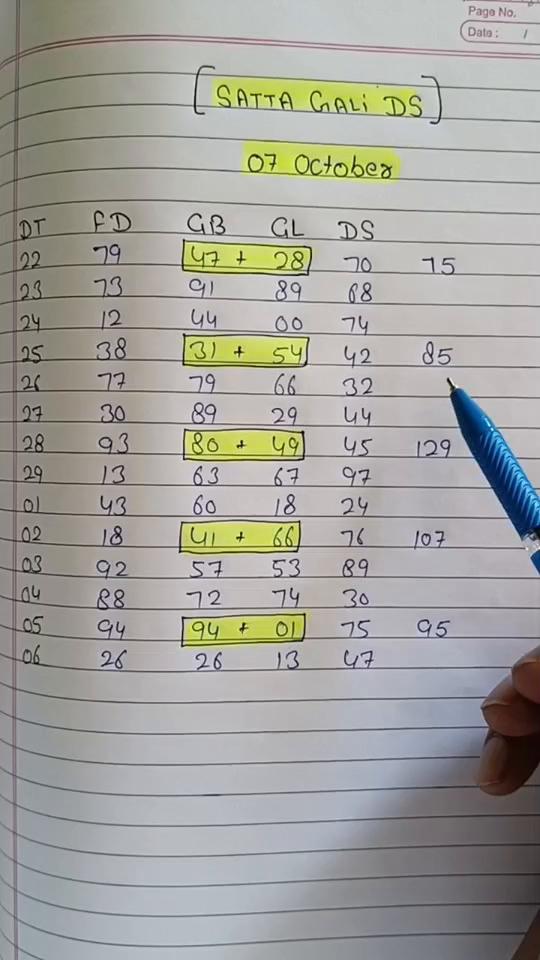 Page No.
Date: /
[SATTA GALI DS]
07 October
DT FD GB GL DS
22 79 47 + 28 70 75
23 73 91 89 68
24 12 44 00 74
25 38 31 + 54 42 85
26 77 79 66 32
27 30 89 29 44
28 93 80 + 49 45 129
29 13 63 67 97
01 43 60 18 24
02 18 41 + 66 76 107
03 92 57 53 89
04 88 72 74 30
05 94 94 + 01 75 95
06 26 26 13 47